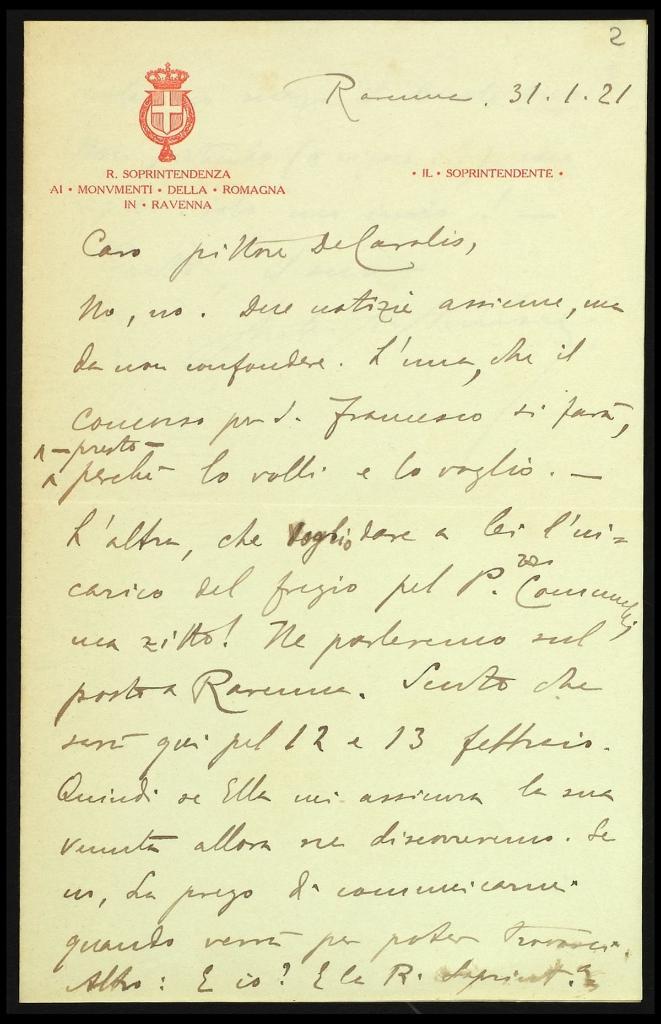 2
Ravenna. 31.1.21
R. SOPRINTENDENZA
AI • MONVMENTI • DELLA • ROMAGNA
IN • RAVENNA
• IL • SOPRINTENDENTE •
Caro pittore DeCarolis,
No, no. Due notizie assieme, ma
da non confondere. L'una, che il
concorso per S. Francesco si farà,
– presto –
perché lo volli e lo voglio. –
L'altra, che voglio dare a lei l'in=
carico del fregio pel P.zzo Comunale;
ma zitto! Ne parleremo sul
posto a Ravenna. Sento che
sarà qui pel 12 e 13 febbraio.
Quindi se Ella mi assicura la sua
venuta allora ne discorreremo. Se
no, La prego di comunicarmi
quando verrà per poter trovarci.
Altro: E io? E la R. Soprint.a